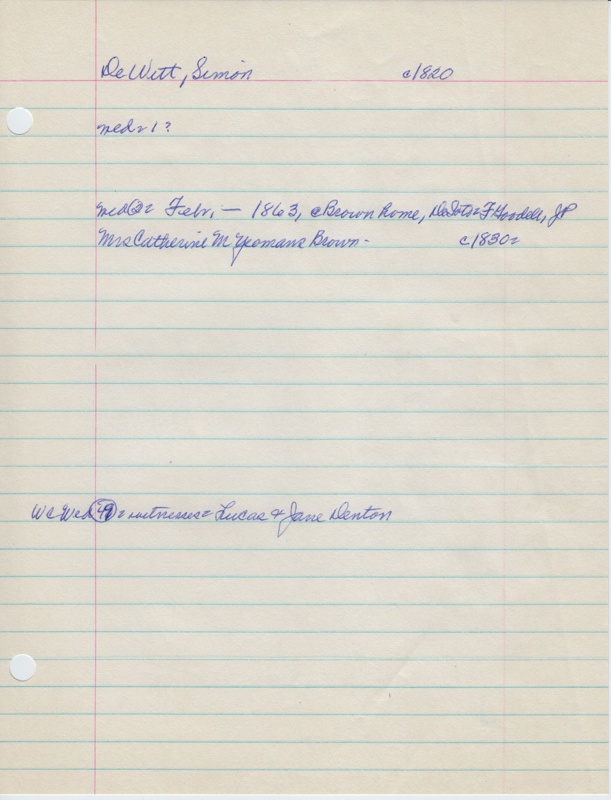 DeWitt, Simon c1820
wed= 1?
wed②= Febr. — 1863, @Brown home, DeSoto= F Goodell, JP
Mrs Catherine M Yeomans Brown- c1830=
WC Wed 49= witnesses= Lucas & Jane Denton